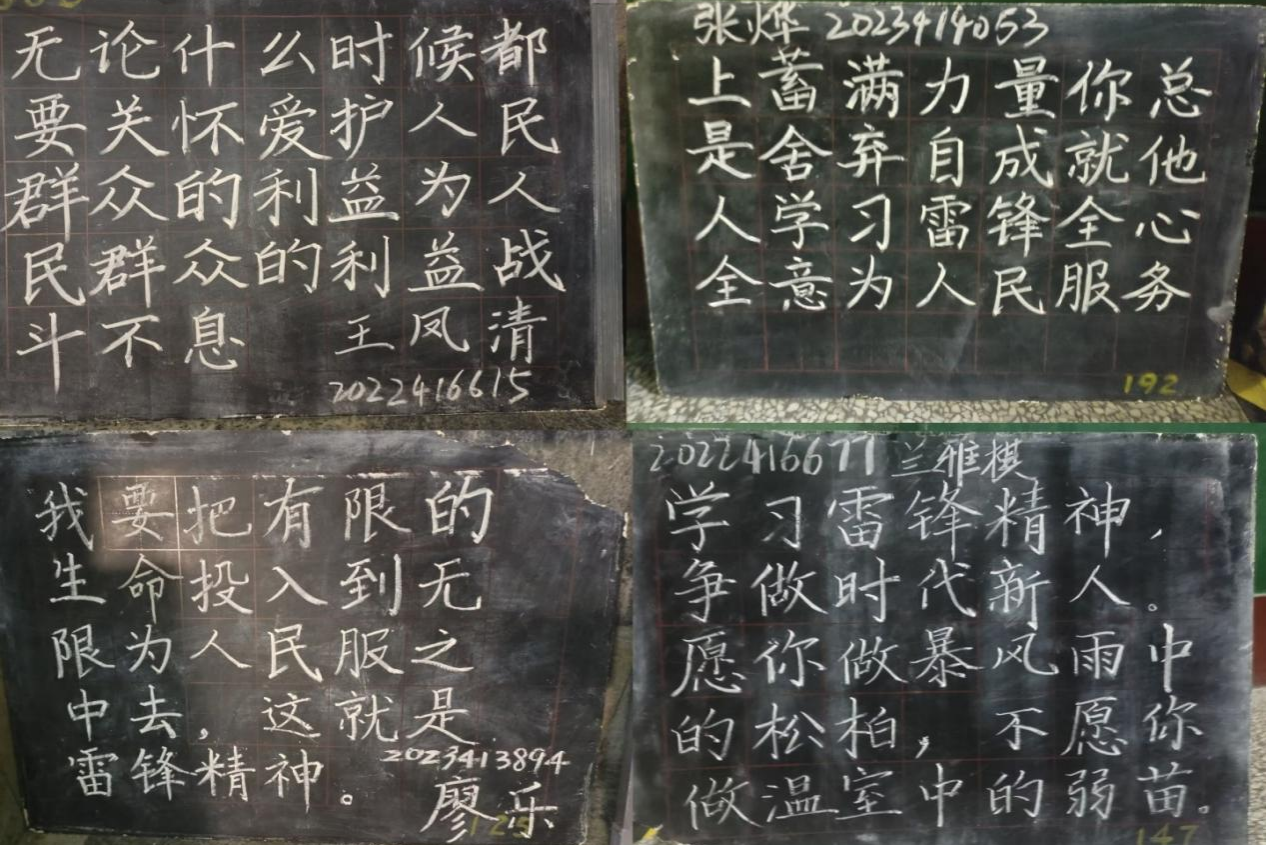 无论什么时候都
要关怀爱护人民
群众的利益为人
民群众的利益战
斗不息 王凤清
2022416615
张烨 2023414053
上蓄满力量你总
是舍弃自成就他
人学习雷锋全心
全意为人民服务
192
我要把有限的
生命投入到无
限为人民服之
中去，这就是
2023413894
雷锋精神。廖乐
125
2022416677 兰雅棋
学习雷锋精神，
争做时代新人。
愿你做暴风雨中
的松柏，不愿你
做温室中的弱苗。
147